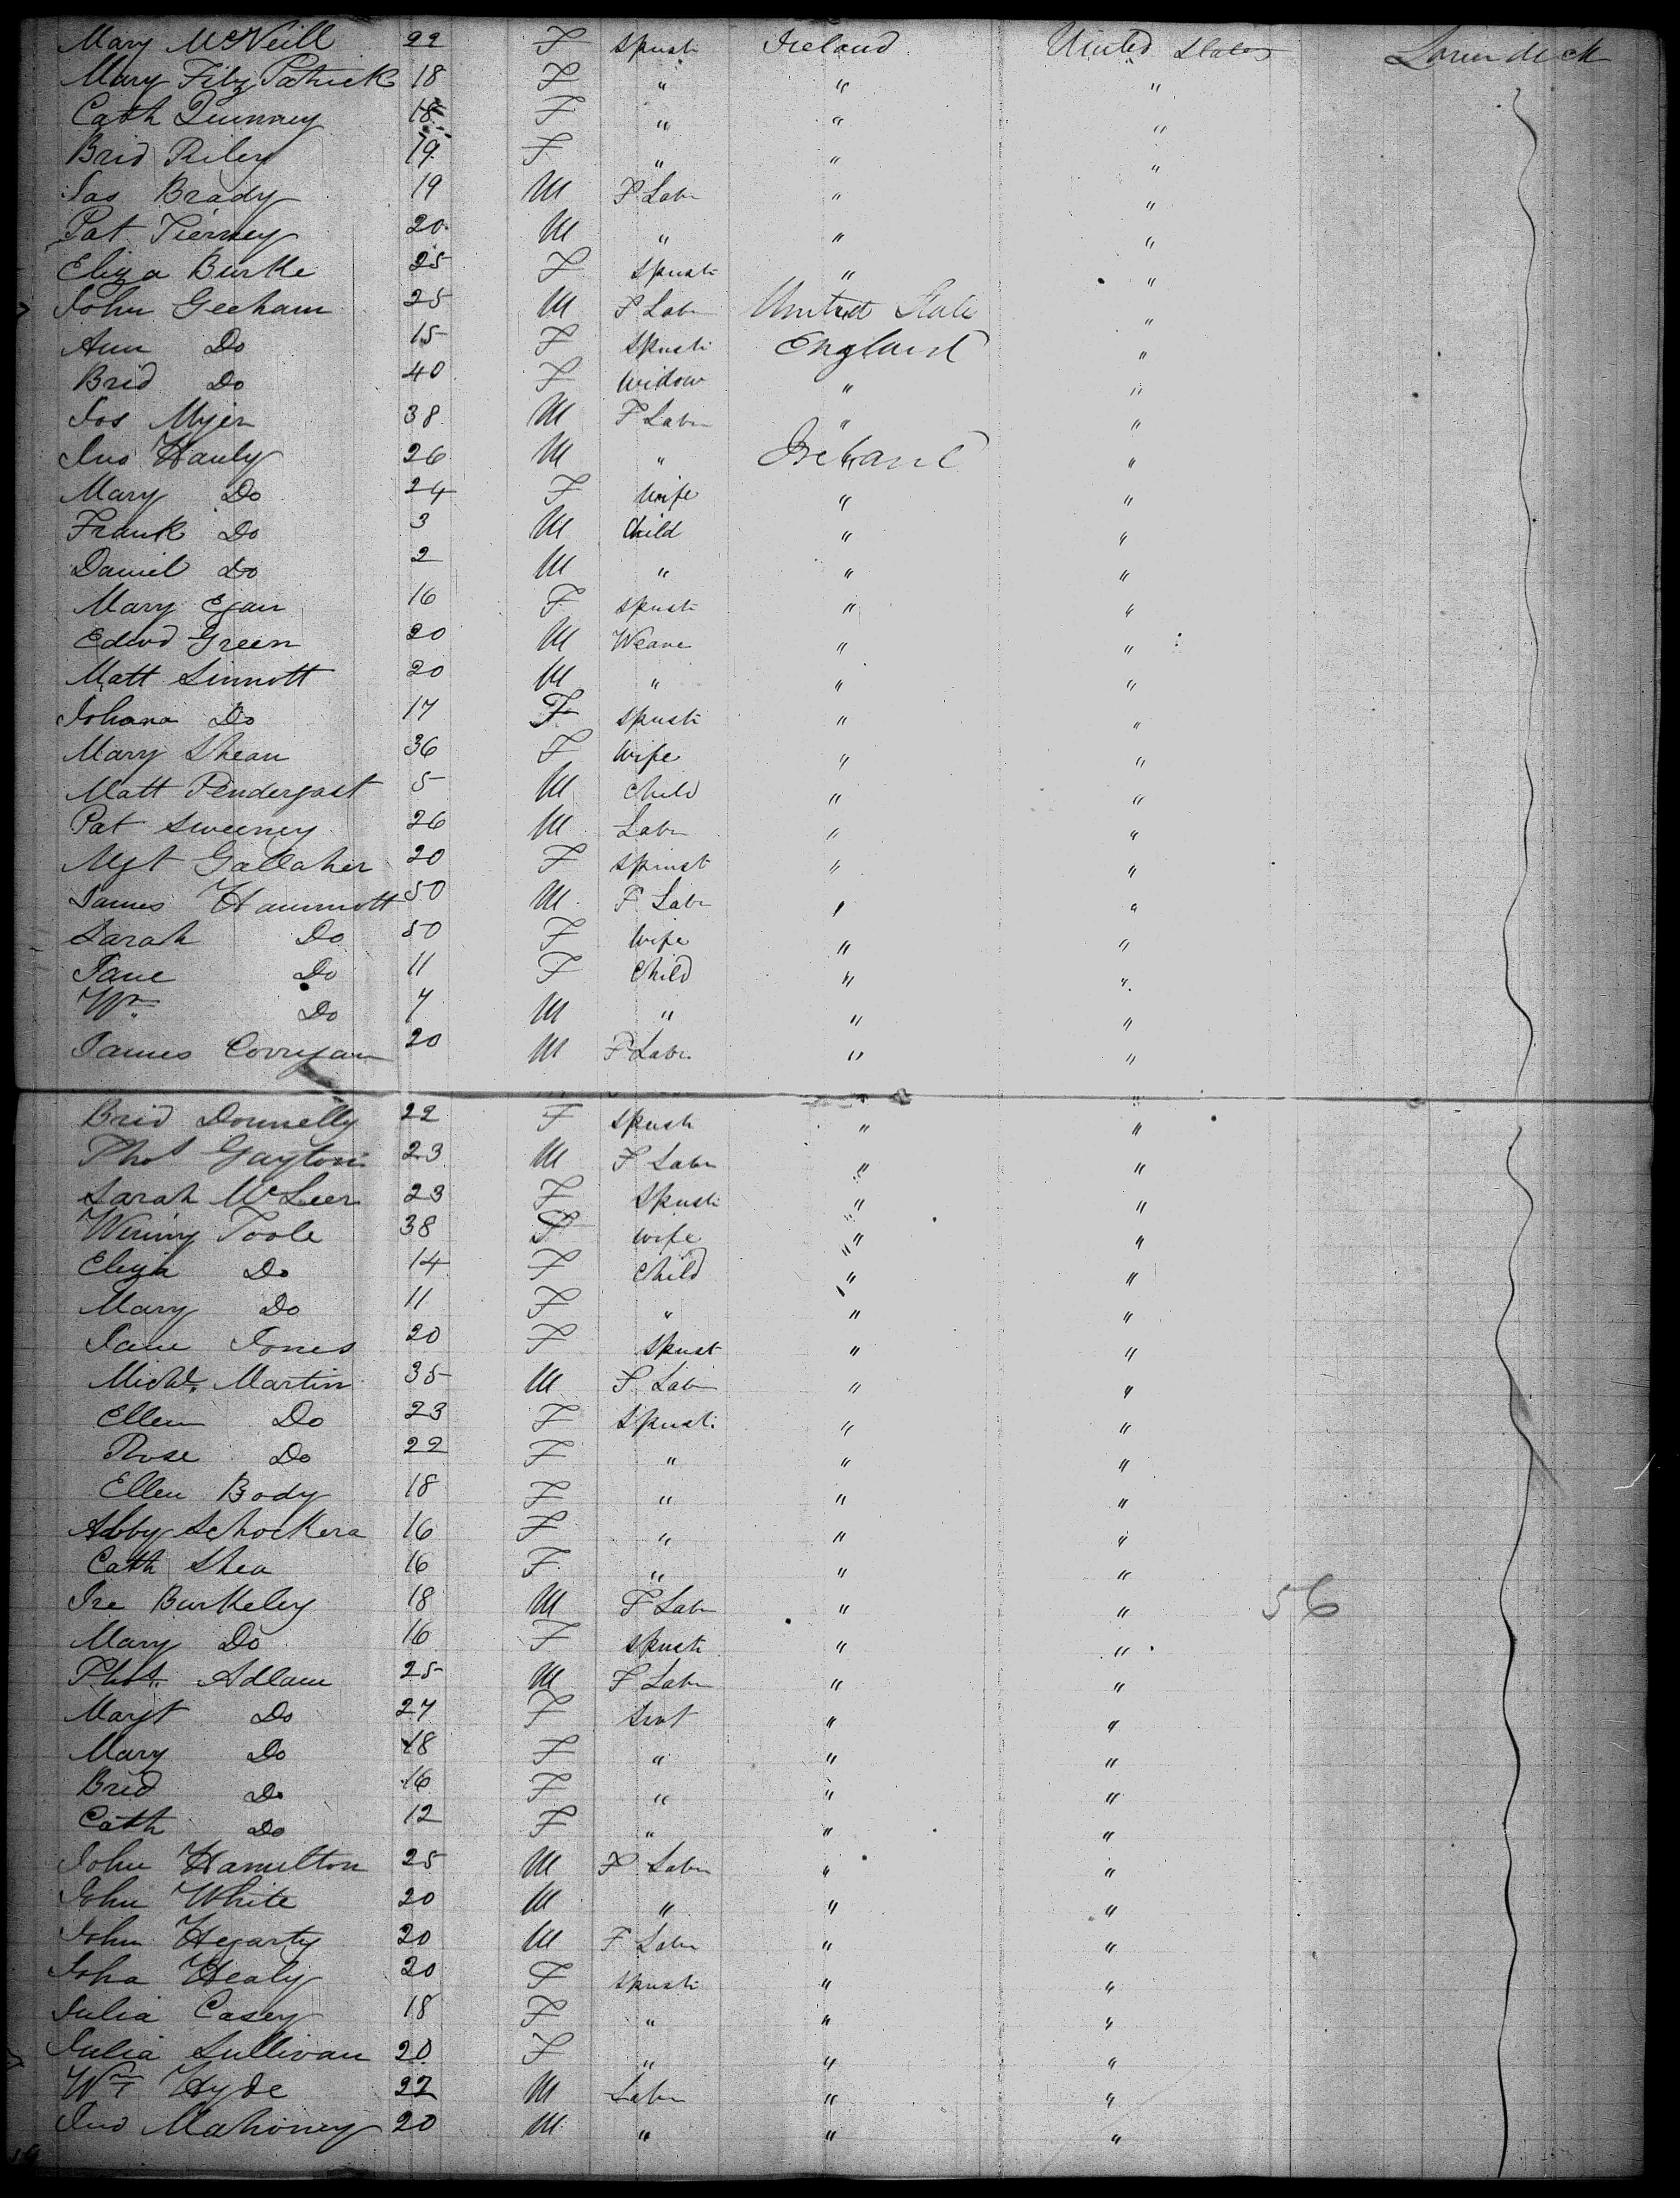 Mary McNeill 22 F Spust Ireland United States Lower deck
Mary Fitz Patrick 18 F " " "
Cath Quinney 18 F " " "
Brid Riley 19 F " " "
Jas Brady 19 M F Labr " "
Pat Tierney 20 M " " "
Eliza Burke 25 F Spust " "
John Geeham 25 M F Labr United State "
Ann Do 15 F Spust England "
Brid Do 40 F Widow " "
Jos Myer 38 M F Labr " "
Jno Hanly 26 M " Ireland "
Mary Do 24 F Wife " "
Frank Do 3 M Child " "
Daniel Do 2 M " " "
Mary Egan 16 F Spust " "
Edwd Green 20 M Weave " "
Matt Sinnott 20 M " " "
Johana Do 17 F Spust " "
Mary Shean 36 F Wife " "
Matt Pendergast 5 M Child " "
Pat Sweeney 26 M Labr " "
Mgt Gallaher 20 F Spinst " "
James Hammott 50 M F Labr " "
Sarah Do 50 F Wife " "
Jane Do 11 F Child " "
Wm Do 7 M " " "
James Corrigan 20 M F Labr " "
Brid Donnelly 22 F Spust " "
Thos Gayton 23 M F Labr " "
Sarah McLeer 23 F Spust " "
Winny Toole 38 F Wife " "
Eliza Do 14 F Child " "
Mary Do 11 F " " "
Jane Jones 20 F Spust " "
Michl. Martin 35 M F Labr " "
Ellen Do 23 F Spust " "
Rose Do 22 F " " "
Ellen Body 18 F " " "
Abby Schockera 16 F " " "
Cath Shea 16 F " " "
Ire Burkeley 18 M F Labr " " 56
Mary Do 16 F Spust " "
Thos. Adlam 25 M F Labr " "
Margt Do 27 F Srvt " "
Mary Do 18 F " " "
Brid Do 16 F " " "
Cath Do 12 F " " "
John Hamilton 25 M F Labr " "
John White 20 M " " "
John Hegarty 20 M F Labr " "
Joha Healy 20 F Spust " "
Julia Casey 18 F " " "
Julia Sullivan 20 F " " "
Wm Hyde 22 M Labr " "
Jno Mahoney 20 M " " "